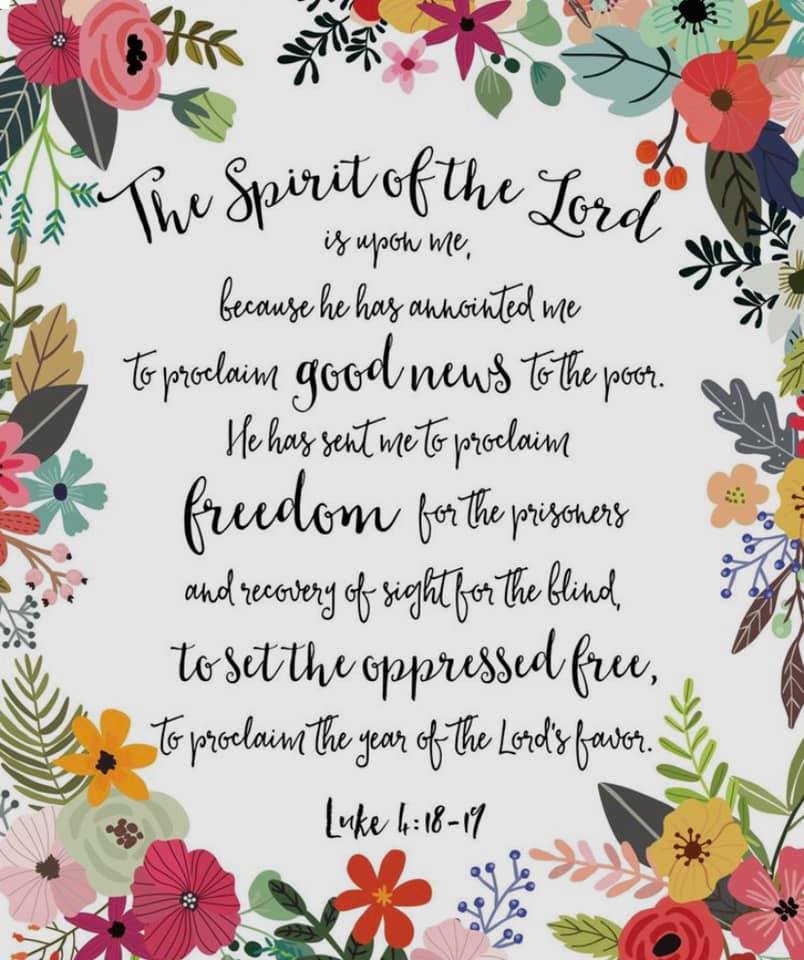 The Spirit of the Lord
is upon me,
because he has annointed me
to proclaim good news to the poor.
He has sent me to proclaim
freedom for the prisoners
and recovery of sight for the blind,
to set the oppressed free,
to proclaim the year of the Lord's favor.
Luke 4:18-19